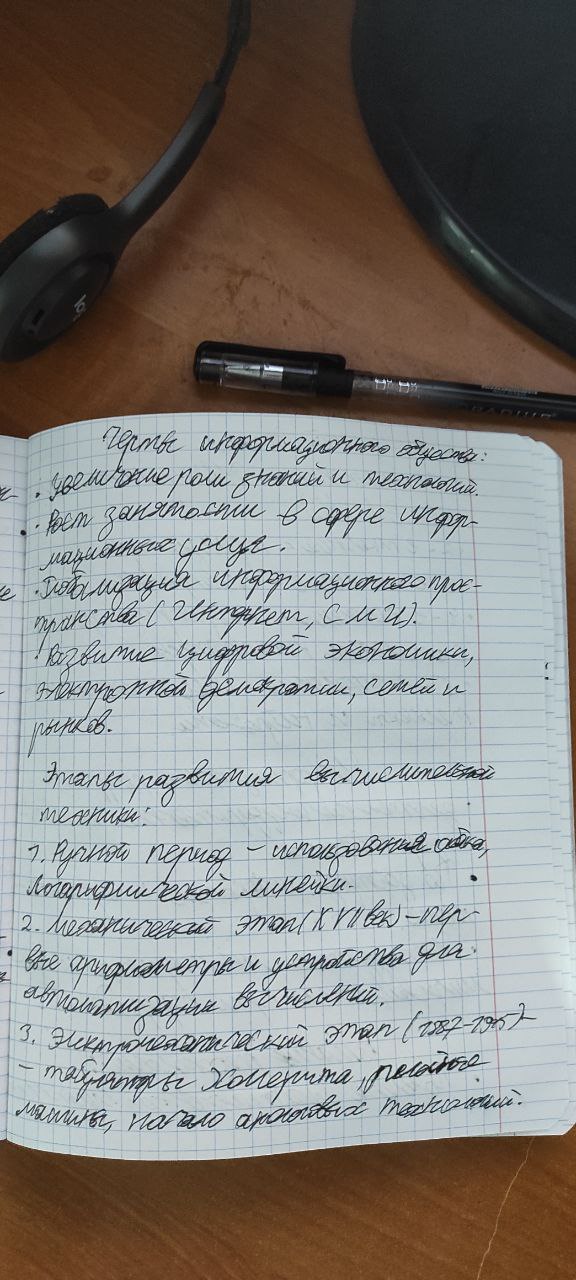 Черты информационного общества:
· Увеличение роли знаний и технологий.
· Рост занятости в сфере инфор-
мационных услуг.
· Глобализация информационного прос-
транства (Интернет, СМИ).
· Развитие цифровой экономики,
электронной демократии, сетей и
рынков.
Этапы развития вычислительной
техники:
1. Ручной период – использование
логарифмической линейки.
2. Механический этап (XVII век) – пер-
вые арифмометры и устройства для
автоматизации вычислений.
3. Электромеханический этап
– табуляторы Холлерита, релейные
машины, начало технологий.